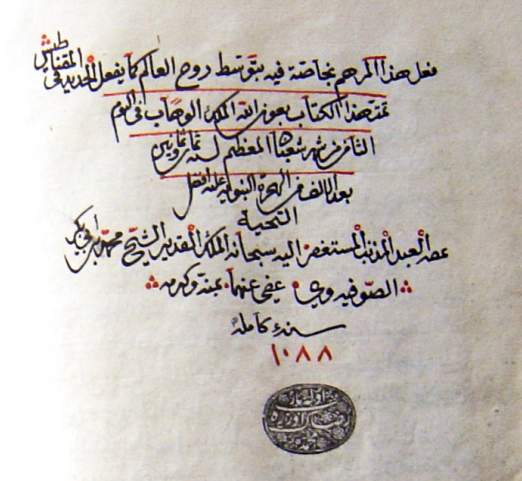 فعل هذا المرهم بخاصة فيه بتوسط روح العالم كما يفعل الحديد في المقناطيس
تمت هذا الكتاب بعون الله الملك الوهاب في اليوم
الثامن من شهر شعبان المعظم سنه ثمان وثمانين
بعد الالف من الهجرة النبويه عليه افضل
التحية
العبد المذنب المستغفر اليه سبحانه الملك القدير الشيخ محمد
الصوفيه وي عفى عنهما بمنه وكرمه
سنة كامله
١٠٨٨